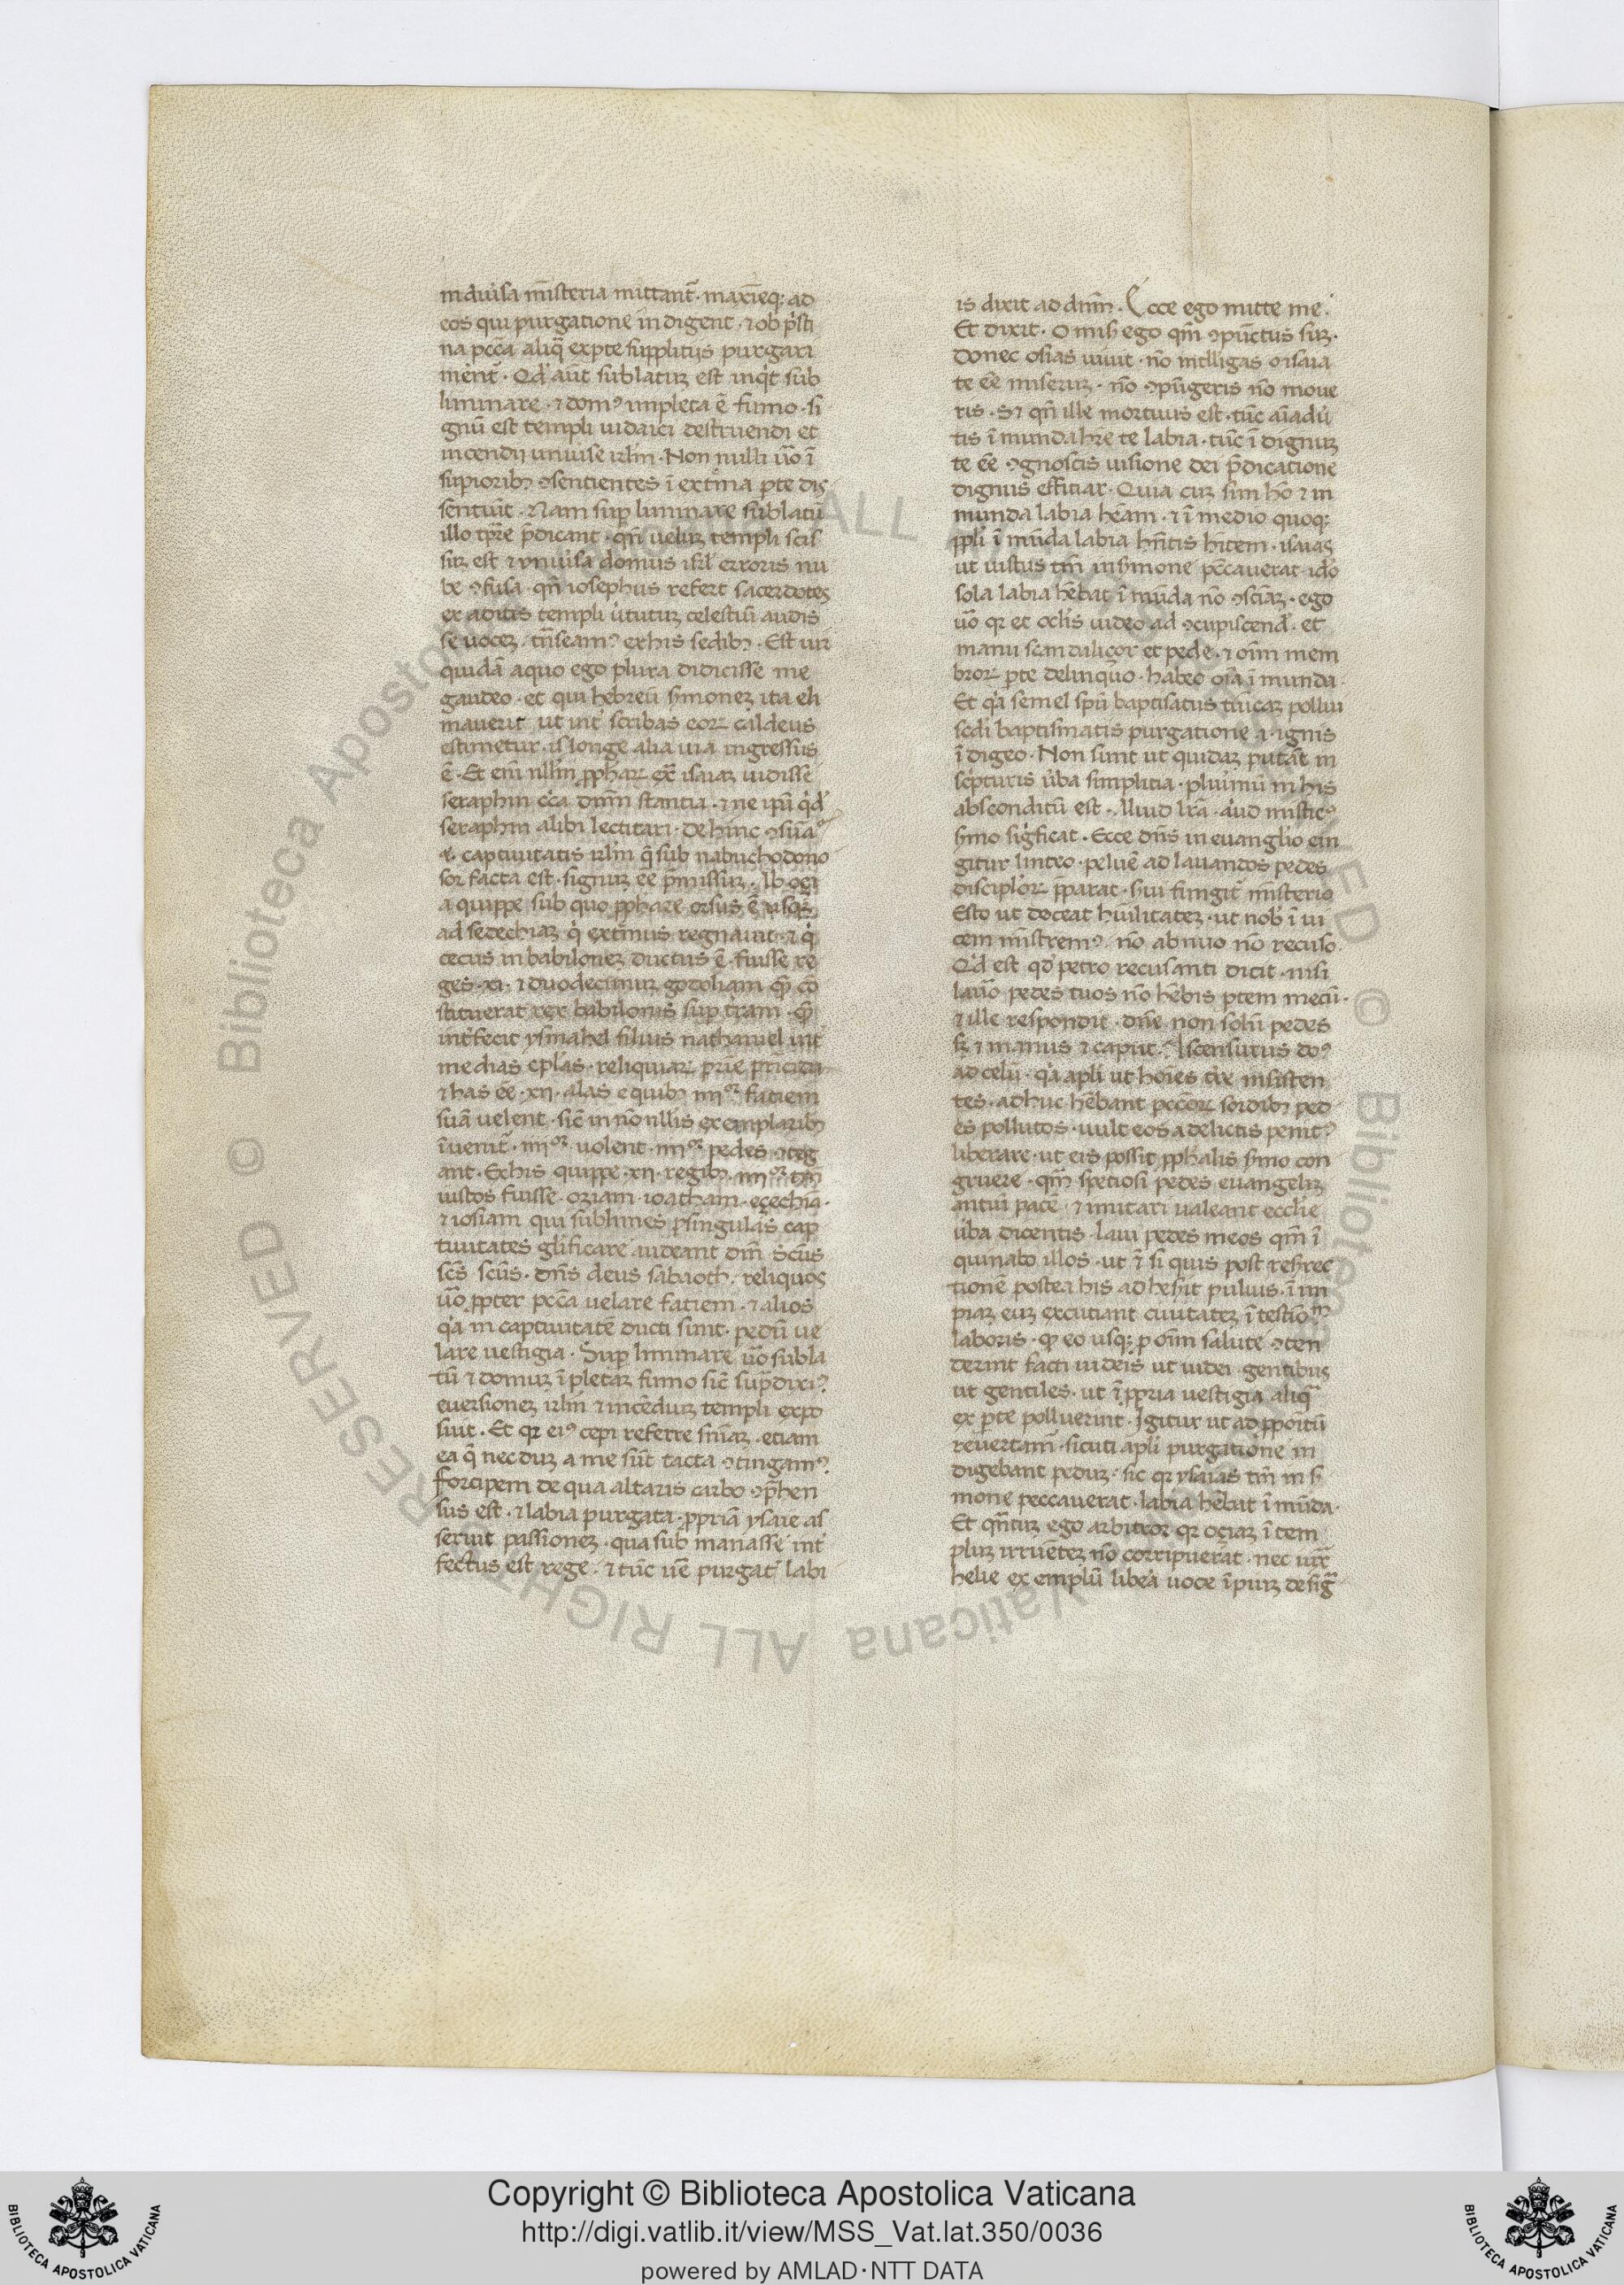 in diu͛sa mĩsteria mittant᷑ · maxĩeq; ad
eos qui purgatione indigent · ⁊ ob p͛sti
na pcc̃a aliq̃ ex pte supplitijs purgari
me͛nt᷑ · Qd͛ aũt sublatuʒ est inq͛t sub
liminare · ⁊ domꝰ impleta ẽ fumo · si
gnũ est templi iudaici destruendi et
incendij uniuse irl̃m · Non nulli u͛o ĩ
supioribꝫ ꝯsentientes ĩ extima pte dis
sentiũt · Nam sup liminare sublatũ
illo tp̃re p̃dicant · qñ ueluʒ templi scis
suʒ est ⁊ vniu͛sa domus isrl̃ erroris nu
be ꝯfusa · qñ iosephus refert sacerdotes
ex aditis templi u͛tutuʒ celestiũ audis
se uoceʒ · trãseamꝰ ex his sedibꝫ · Est uir
quidã a quo ego plura didicisse me
gaudeo · et qui hebreũ s͛moneʒ ita eli
mauerit ut int͛ scribas eoꝝ caldeus
estimetur · is longe alia uia ingressus
ẽ · Et eni͛ nllm̃ ꝓphaꝝ ex͛ isaiaʒ uidisse
seraphin cc͛a dñm stantia · ⁊ ne ipũ q͛d
seraphin alibi lectitari · dehinc ꝯsũa
captiuitatis irl̃m q̃ sub nabuchodono
sor facta est · signuʒ ee p̃missuʒ · Ab oçi
a quippe sub quo ꝓphare orsus ẽ usqʒ
ad sedechiaʒ q͛ extimus regnauit · ⁊ q͛
cecus in babiloneʒ ductus ẽ · fuisse re
ges · xi · ⁊ duodecimuʒ godoliam quẽ cõ
stituerat rex babilonis sup t͛ram · quẽ
int͛fecit ysmahel filius nathaniel int͛
medias eplas · reliquiaꝝ prie pricida
⁊ has ee · xij · alas e quibꝫ iiij faciem
suã uelent · sic̃ in nõnllis exemplaribꝫ
ĩuenit᷑ · iiij uolent · iiij pedes ꝯteg
ant · Ex his quippe · xij · regibꝫ iiij tm̃
iustos fuisse · oziam · ioatham · eçechiã ·
⁊ iosiam qui sublimes p singulas cap
tiuitates gl̃ificare audeant dm̃ · Sc̃us
sc̃s sc̃us · dñs deus sabaoth · reliquos
u͛o ꝓpter pcc̃a uelare faciem · ⁊ alios
q͛a in captiuitatẽ ducti sunt · pedũ ue
lare uestigia · Sup liminare u͛o subla
tũ ⁊ domuʒ ĩpletaʒ fumo sic̃ sup̃ diximꝰ
euersioneʒ irl̃m ⁊ incẽdiuʒ templi expo
suit · Et qʒ eiꝰ cepi referre sñiaʒ · etiam
ea q̃ necduʒ a me sũt tacta ꝯtingamꝰ ·
Forcipem de qua altaris carbo ꝯp̃hen
sus est · ⁊ labia purgata · ꝓpriã ysaie as
seruit passioneʒ · qua sub manasse int͛
fectus est rege · ⁊ tũc ue͛ purgat᷑ labi
is dixit ad dñm · Ecce ego mitte me ·
Et dixit · O miś ego qm̃ ꝯpũctus suʒ ·
Donec osias uiuit · nõ intlligas o isaia
te eẽ miseruʒ · nõ ꝯpũgeris nõ moue
ris · S⁊ qñ ille mortuus est · tũc aĩadũ
tis ĩmunda hr̃e te labia · tũc ĩdignuʒ
te eẽ ꝯgnoscis uisione dei p̃dicatione
dignus efficiar · Quia cuʒ sim hõ ⁊ in
munda labia hẽam · ⁊ ĩ medio quoq;
ppli ĩmũda labia hñtis hitem · isaias
ut iustus tm̃ in s͛mone pc̃cauerat · ido͛
sola labia hẽbat ĩmũda nõ ꝯsciãʒ · ego
u͛o qʒ et ocl̃is uideo ad ꝯcupiscend · et
manu scandaliçor et pede · ⁊ oĩm mem
broꝝ pte delinquo · habeo oĩa ĩmunda ·
Et q͛a semel spũ baptisatus tũicaʒ pollui
sc͛di baptismatis purgatione · i · ignis
ĩdigeo · Non sunt ut quidaʒ putãt in
sc͛pturis u͛ba simplitia · plurimũ in his
absconditũ est · Aliud lr̃a · a͛ud misticꝰ
s͛mo sig͛ficat · Ecce dñs in euanglio cin
gitur linteo · peluẽ ad lauandos pedes
disciploꝝ p̃parat · s͛ui fungit᷑ misterio
Esto ut doceat hũilitateʒ · ut nob ĩ ui
cem mĩstremꝰ · nõ abnuo nõ recuso ·
Qd͛ est qd͛ petro recusanti dicit · nisi
lau͛o pedes tuos nõ hẽbis ptem mecũ ·
⁊ ille respondit · dñe non solũ pedes
sʒ ⁊ manus ⁊ caput · Ascensurus do͛
ad celũ · q͛a apl̃i ut hoĩes t͛re insisten
tes · adhuc hẽbant pccõꝝ sordibꝫ ped
es pollutos · uult eos a delictis penitꝰ
liberare · ut eis possit ꝓphalis s͛mo con
gruere · qm̃ spetiosi pedes euangeliʒ
antiũ pacẽ · ⁊ imitari ualeant ecclie
u͛ba dicentis · laui pedes meos qm̃ ĩ
quinabo illos · ut ⁊ si quis post res͛rec
tionẽ postea his adhesit puluis · ĩ im
piaʒ euʒ excutiant ciuitateʒ ĩ testio
laboris · qʒ eo usq; p oĩm salute ꝯten
derint facti iudeis ut iudei · gentibus
ut gentiles · ut ĩ ꝓpria uestigia aliq̃
ex pte polluerint · Igitur ut ad ꝓpoitũ
reuertam᷑ · sicuti apl̃i purgatione in
digebant peduʒ · sic qʒ ysaias tm̃ in s͛
mone peccauerat · labia hẽbat ĩmũda ·
Et quãtuʒ ego arbitror qʒ oçiaʒ ĩ tem
pluʒ irruẽteʒ nõ corripuerat · nec iux͛
helie exemplũ libe͛a uoce ĩpiuʒ desig̃
Copyright © Biblioteca Apostolica Vaticana
http://digi.vatlib.it/view/MSS_Vat.lat.350/0036
powered by AMLAD·NTT DATA